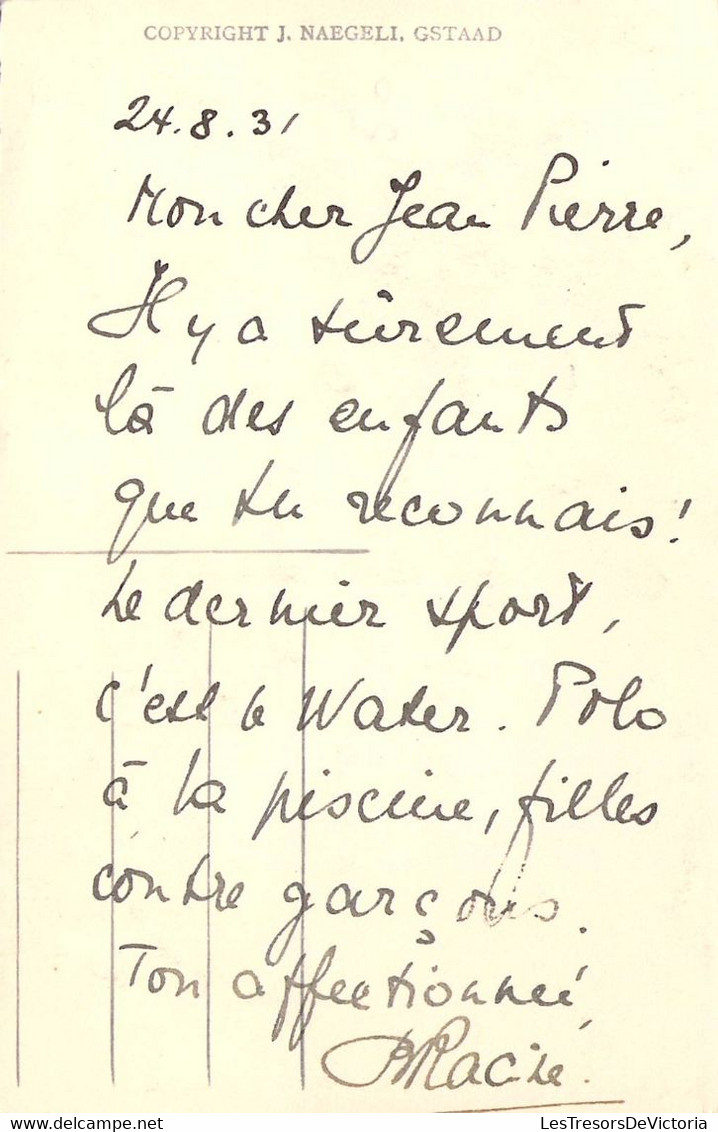 COPYRIGHT J. NAEGELI, GSTAAD
24.8.31
Mon cher Jean Pierre,
Il y a sûrement
là des enfants
que tu reconnais!
Le dernier sport,
c'est le Water-Polo
à la piscine, filles
contre garçons.
Ton affectionné,
Racine.
LesTresorsDeVictoria